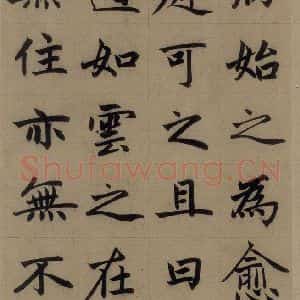 始之為愈
可之且曰
如雲之在
無住亦無不
Shufawang.CN